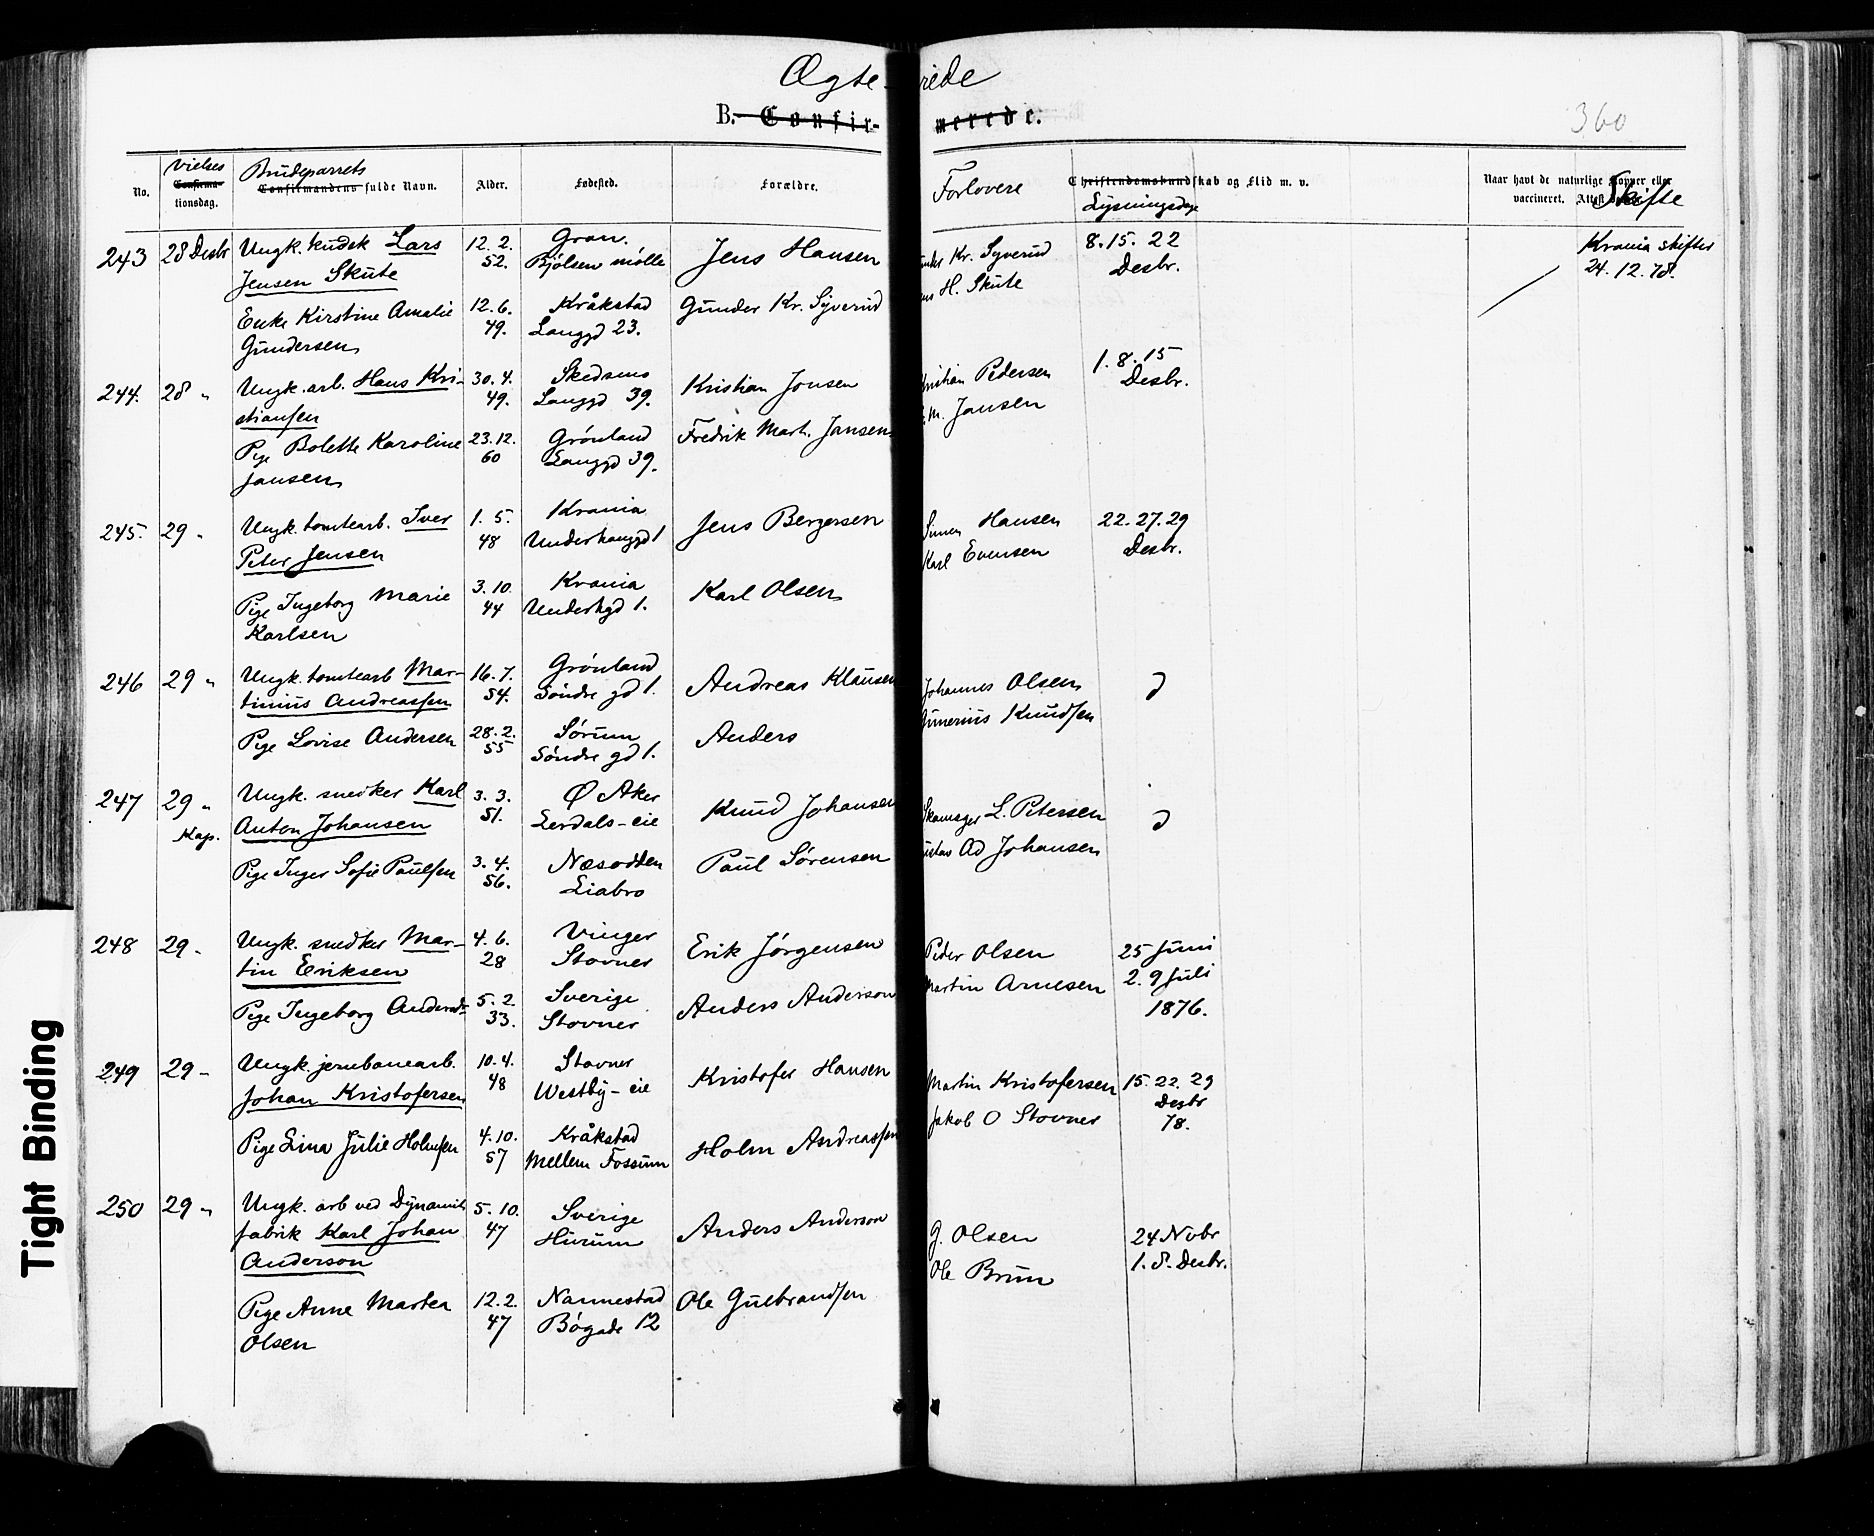 Ægte- rede
B. Confir- merede.
360
No. Vielses Confirma-tionsdag. Brudeparrets Confirmandens fulde Navn. Alder. Fødested. Forældre. Forlovere Christendomskundskab og Flid m. v. Lysningsdage Naar havt de naturlige Kopper eller vaccineret. Skifte
243 28 Desbr Ungk. kudsk Lars 12. 2. Gran. Jens Hansen Kr. Syverud 8. 15. 22 Krania skifter
Jensen Skute 52. Bjølsen mølle H. Skute Desbr. 24. 12. 78.
Enke Kirstine Amalie 12. 6. Kråkstad Gunder Kr. Syverud
Gundersen 49. Langgd 23.
244. 28 " Ungk. arb. Hans Kri- 30. 4. Skedsmo Kristian Jonsen Pedersen 1. 8. 15
stiansen 49. Langgd 39. M. Jansen Desbr.
Pige Bolette Karoline 23. 12. Grønland Fredrik Mart. Jansen
Jansen 60 Langgd 39.
245. 29 " Ungk. tomtearb. Iver 1. 5. Krania Jens Bergersen Simen Hansen 22. 27. 29
Peter Jensen 48 Underhauggd 1 Karl Evensen Desbr.
Pige Ingeborg Marie 3. 10. Krania Karl Olsen
Karlsen 44 Underhgd 1.
246 29 " Ungk. tomtearb Mar- 16. 7. Grønland Andreas Klausen Johannes Olsen
tinius Andreassen 54. Søndre gd 1. Gunerius Knudsen
Pige Lovise Andersen 28. 2. Sørum Anders
55 Søndre gd 1.
247 29 " Ungk. snedker Karl 3. 3. Ø Aker Knud Johansen L. Petersen
Kap. Anton Johansen 51. Lerdals-eie Ad Johansen
Pige Inger Sofie Paulsen 3. 4. Næsodden Paul Sørensen
56. Liabro
248 29 - Ungk. snedker Mar- 4. 6. Vinger Erik Jørgensen Peder Olsen 25 Juni
tin Eriksen 28 Stovner Martin Arnesen 2. 9 Juli
Pige Ingeborg Andersdr 5. 2. Sverige Anders Anderson 1876.
33. Stovner
249 29 - Ungk. jernbanearb. 10. 4. Stovner Kristofer Hansen Martin Kristofersen 15. 22. 29
Johan Kristofersen 48 Westby-eie Jakob O Stovner Desbr
78.
Pige Lina Julie Holmsen 4. 10. Kråkstad Holm Andreassen
57 Mellem Fossum
250 29 " Ungk. arb ved Dynamit 5. 10. Sverige Anders Anderson G. Olsen 24 Nvbr
fabrik Karl Johan 47 Hurum Ole Brun 1. 8. Desbr.
Anderson
Pige Anne Marten 12. 2. Nannestad Ole Gulbrandsen
Olsen 47 Bøgade 12
Tight Binding